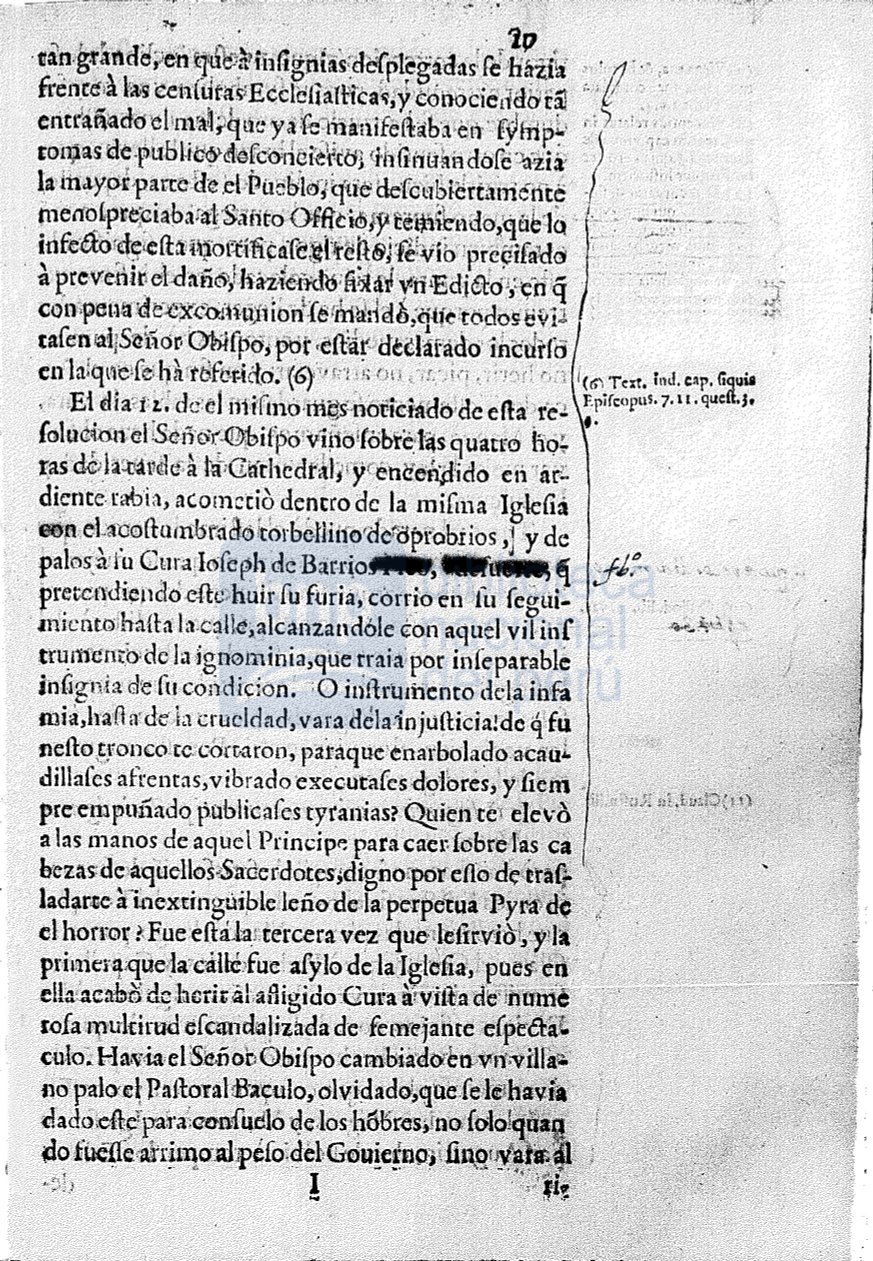 tan grande, en que à insignias desplegadas se hazia
frente à las censuras Ecclesiasticas, y conociendo tã
entrañado el mal, que ya se manifestaba en symp-
tomas de publico desconcierto, insinuandose azia
la mayor parte de el Pueblo, que descubiertamente
menospreciaba al Santo Officio, y temiendo, que lo
infecto de esta mortificase el resto, se vio precisado
à prevenir el daño, haziendo fixar vn Edicto, en q̃
con pena de excomunion se mandò, que todos evi-
tasen al Señor Obispo, por estar declarado incurso
en la que se hà referido. (6)
(6) Text. ind. cap. siquis
Episcopus. 7. 11. quest. 3.
El dia 12. de el mismo mes noticiado de esta re-
solucion el Señor Obispo vino sobre las quatro ho-
ras de la tarde à la Cathedral, y encendido en ar-
diente rabia, acometiò dentro de la misma Iglesia
con el acostumbrado torbellino de oprobrios, y de
palos à su Cura Ioseph de Barrios q̃
pretendiendo este huir su furia, corrio en su segui-
miento hasta la calle, alcanzandóle con aquel vil ins
trumento de la ignominia, que traia por inseparable
insignia de su condicion. O instrumento dela infa
mia, hasta de la crueldad, vara dela injusticia! de q́ fu
nesto tronco te cortaron, paraque enarbolado acau-
dillases afrentas, vibrado executases dolores, y siem
pre empuñado publicases tyranias? Quien te elevò
a las manos de aquel Principe para caer sobre las ca
bezas de aquellos Sacerdotes, digno por esto de tras-
ladarte à inextinguible leño de la perpetua Pyra de
el horror? Fue esta la tercera vez que lesirviò, y la
primera que la calle fue asylo de la Iglesia, pues en
ella acabò de herir al afligido Cura à vista de nume
rosa multitud escandalizada de semejante especta-
culo. Havia el Señor Obispo cambiado en vn villa-
no palo el Pastoral Baculo, olvidado, que se le havia
dado este para consuelo de los hõbres, no solo quan
do fuesse arrimo al peso del Gouierno, sino vara al
I
biblioteca
nacional
del perú